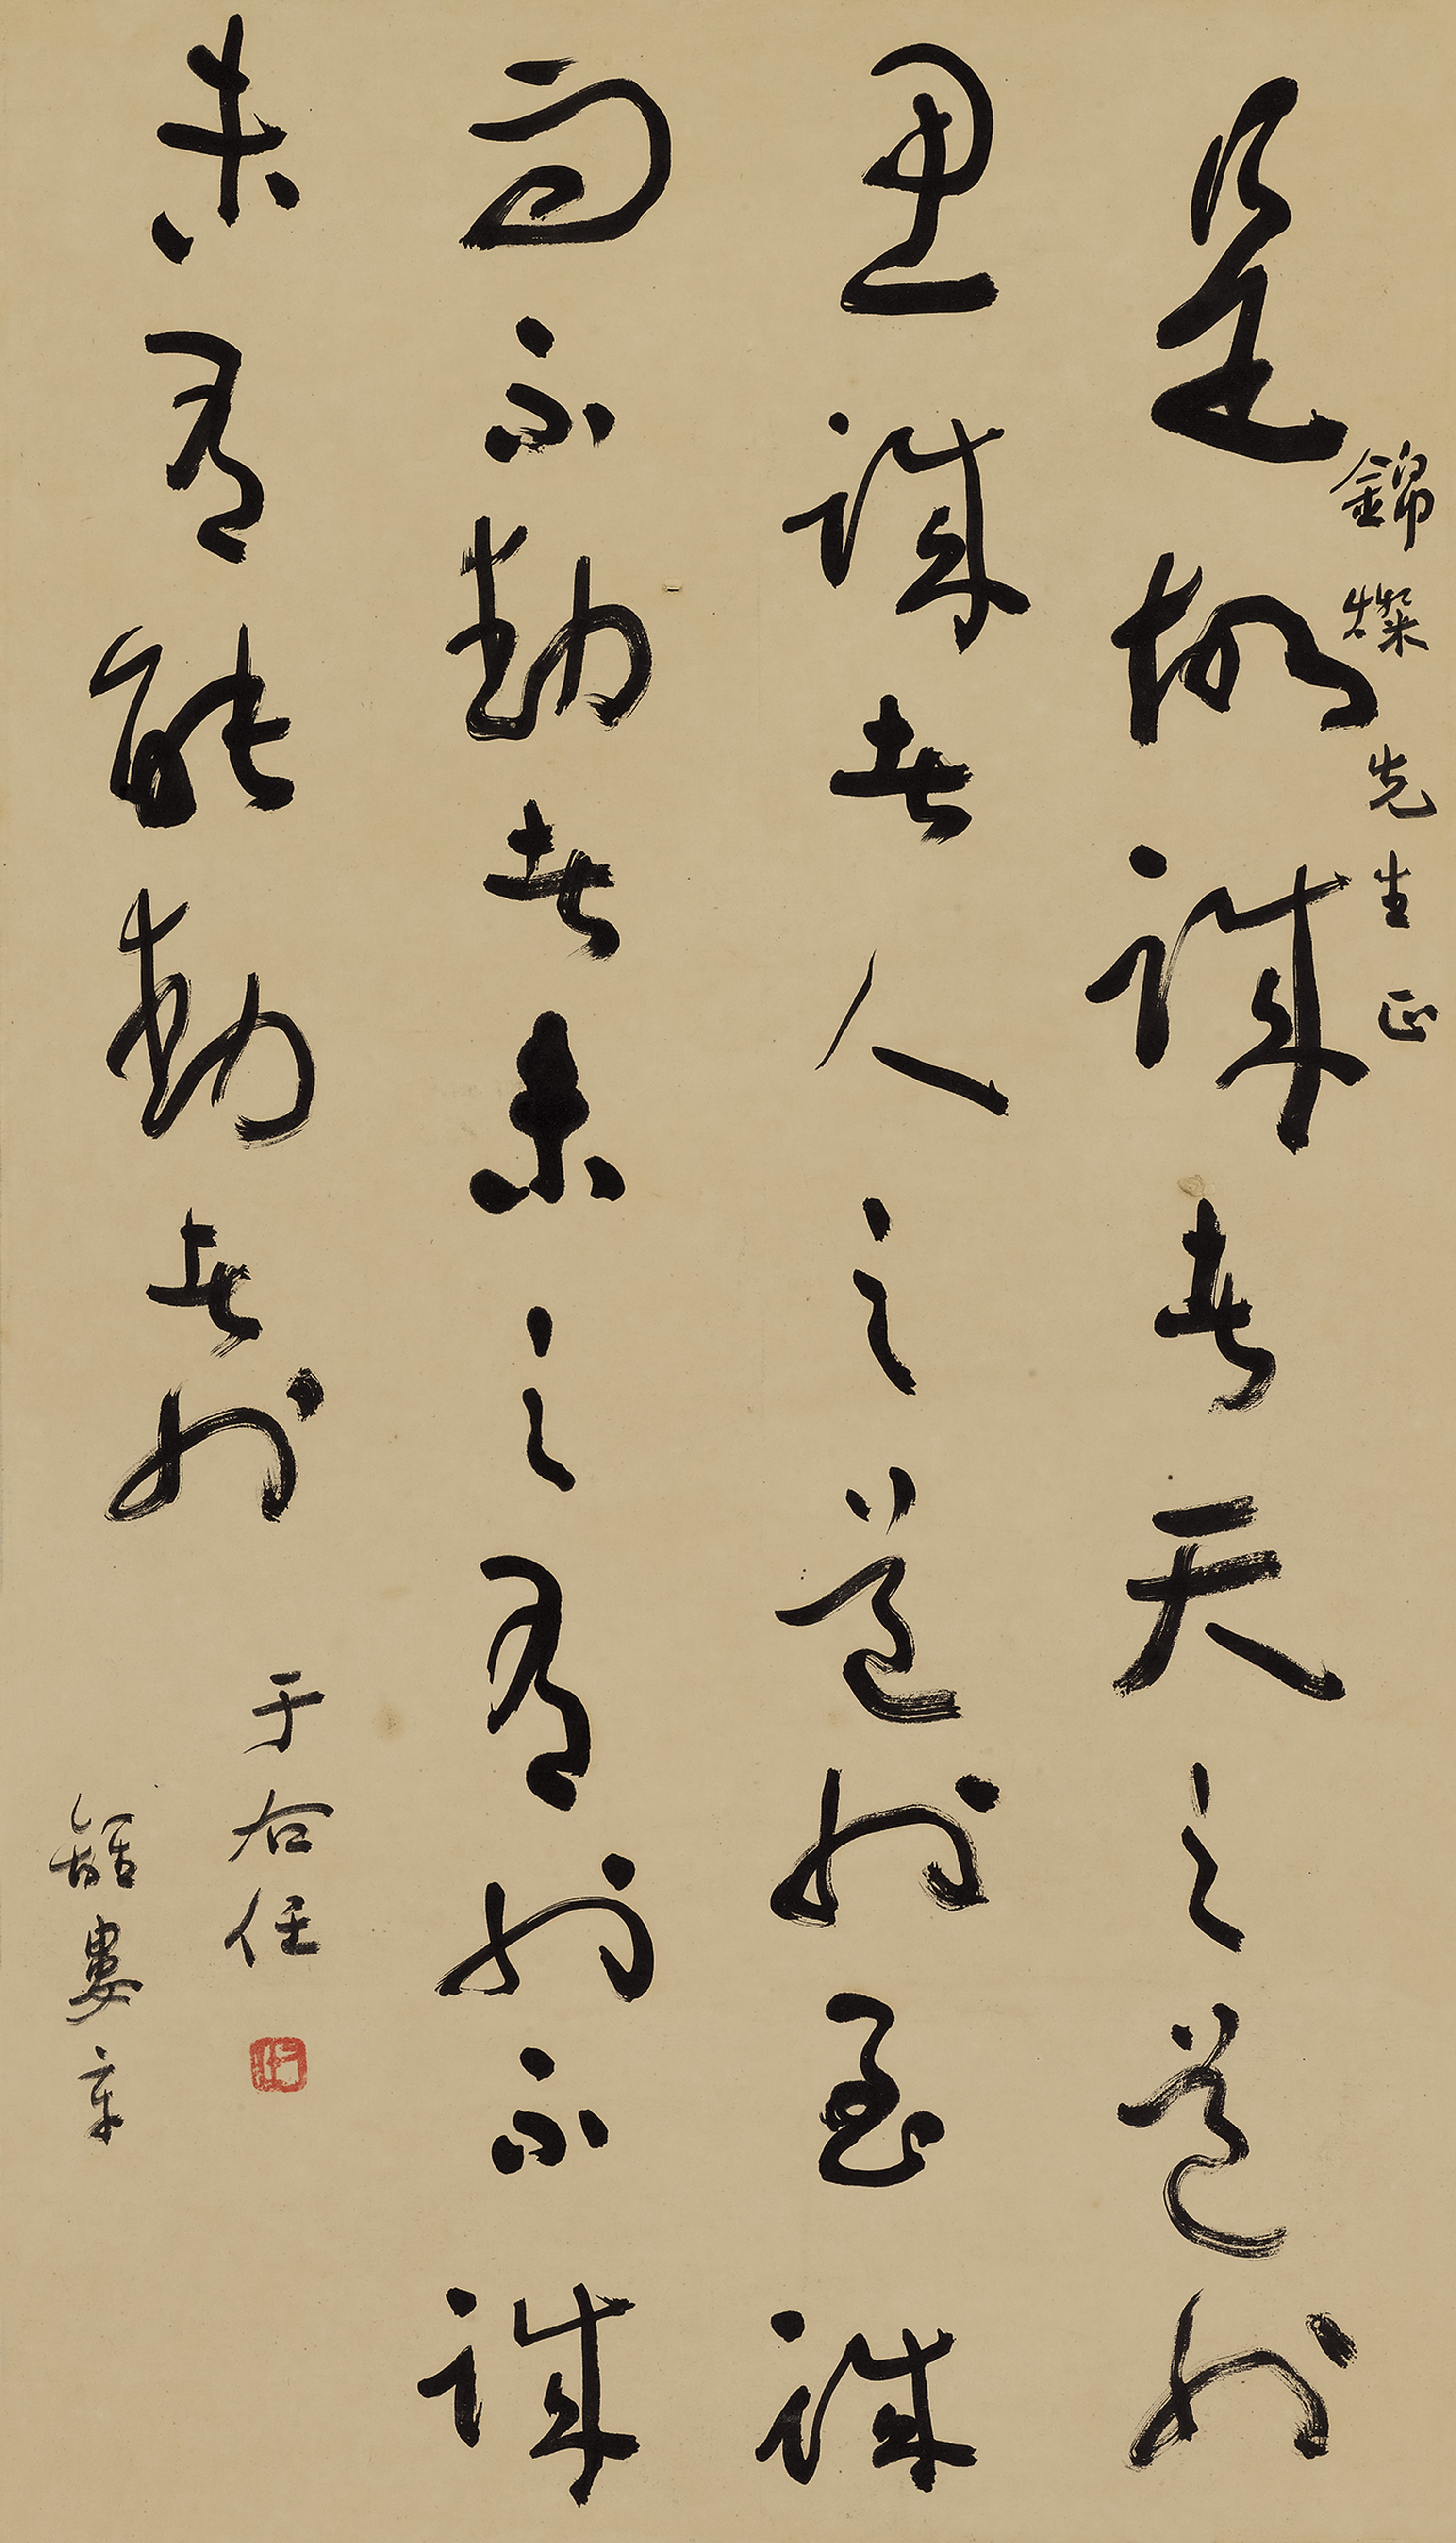 錦燦先生正
是故誠者天之道也
思誠者人之道也至誠
而不動者未之有也不誠
未有能動者也
于右任
離婁章